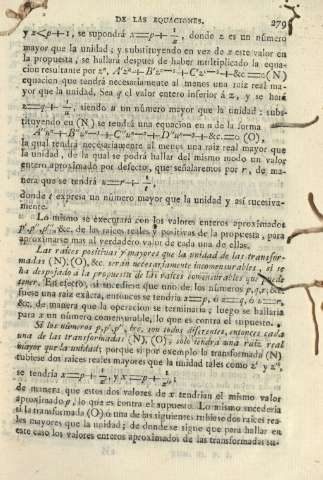 DE LAS EQUACIONES. 279
y x<p+1, se supondrá x=p+1/z, donde z es un número
mayor que la unidad; y substituyendo en vez de x este valor en
la propuesta, se hallará despues de haber multiplicado la equa-
cion resultante por zⁿ, A'zⁿ+B'zⁿ⁻¹+C'zⁿ⁻²+&c=0(N)
equacion que tendrá necesariamente al menos una raiz real ma-
yor que la unidad. Sea q el valor entero inferior á z, y se hará
z=q+1/u, siendo u un número mayor que la unidad: subs-
tituyendo en (N) se tendrá una equacion en u de la forma
A"uⁿ+B"uⁿ⁻¹+C"uⁿ⁻²+D"uⁿ⁻³+&c.=0 (O),
la qual tendrá necesariamente al menos una raiz real mayor que
la unidad, de la qual se podrá hallar del mismo modo un valor
entero aproximado por defecto, que señalaremos por r, de ma-
nera que se tendrá u=r+1/t,
donde t expresa un número mayor que la unidad y así sucesiva-
mente.
Lo mismo se executará con los valores enteros aproximados
p' p'' p''', &c, de las raices reales y positivas de la propuesta, para
aproximarse mas al verdadero valor de cada una de ellas.
Las raices positivas y mayores que la unidad de las transfor-
madas (N), (O), &c. serán necesariamente incomensurables, si se
ha despojado á la propuesta de las raices comensurables que puede
tener. En efecto, si sucediese que uno de los números p, q, r, &c,
fuese una raiz exâcta, entonces se tendria x=p, ó z=q, ó u=r,
&c, de manera que la operacion se terminaria; luego se hallaria
para x un número comensurable, lo que es contra el supuesto.
Si los números p, p', p'', &c, son todos diferentes, entonces cada
una de las transformadas (N), (O), solo tendrá una raiz real
mayor que la unidad; porque si por exemplo la transformada (N)
tubiese dos raices reales mayores que la unidad tales como z' y z'',
se tendria x=p+1/z', y x=p+1/z'';
de manera que estos dos valores de x tendrian el mismo valor
aproximado p, lo que es contra el supuesto. Lo mismo sucederia
si la transformada (O) ó una de las siguientes tubiese dos raices rea-
les mayores que la unidad; de donde se sigue que para hallar en
este caso los valores enteros aproximados de las transformadas su-